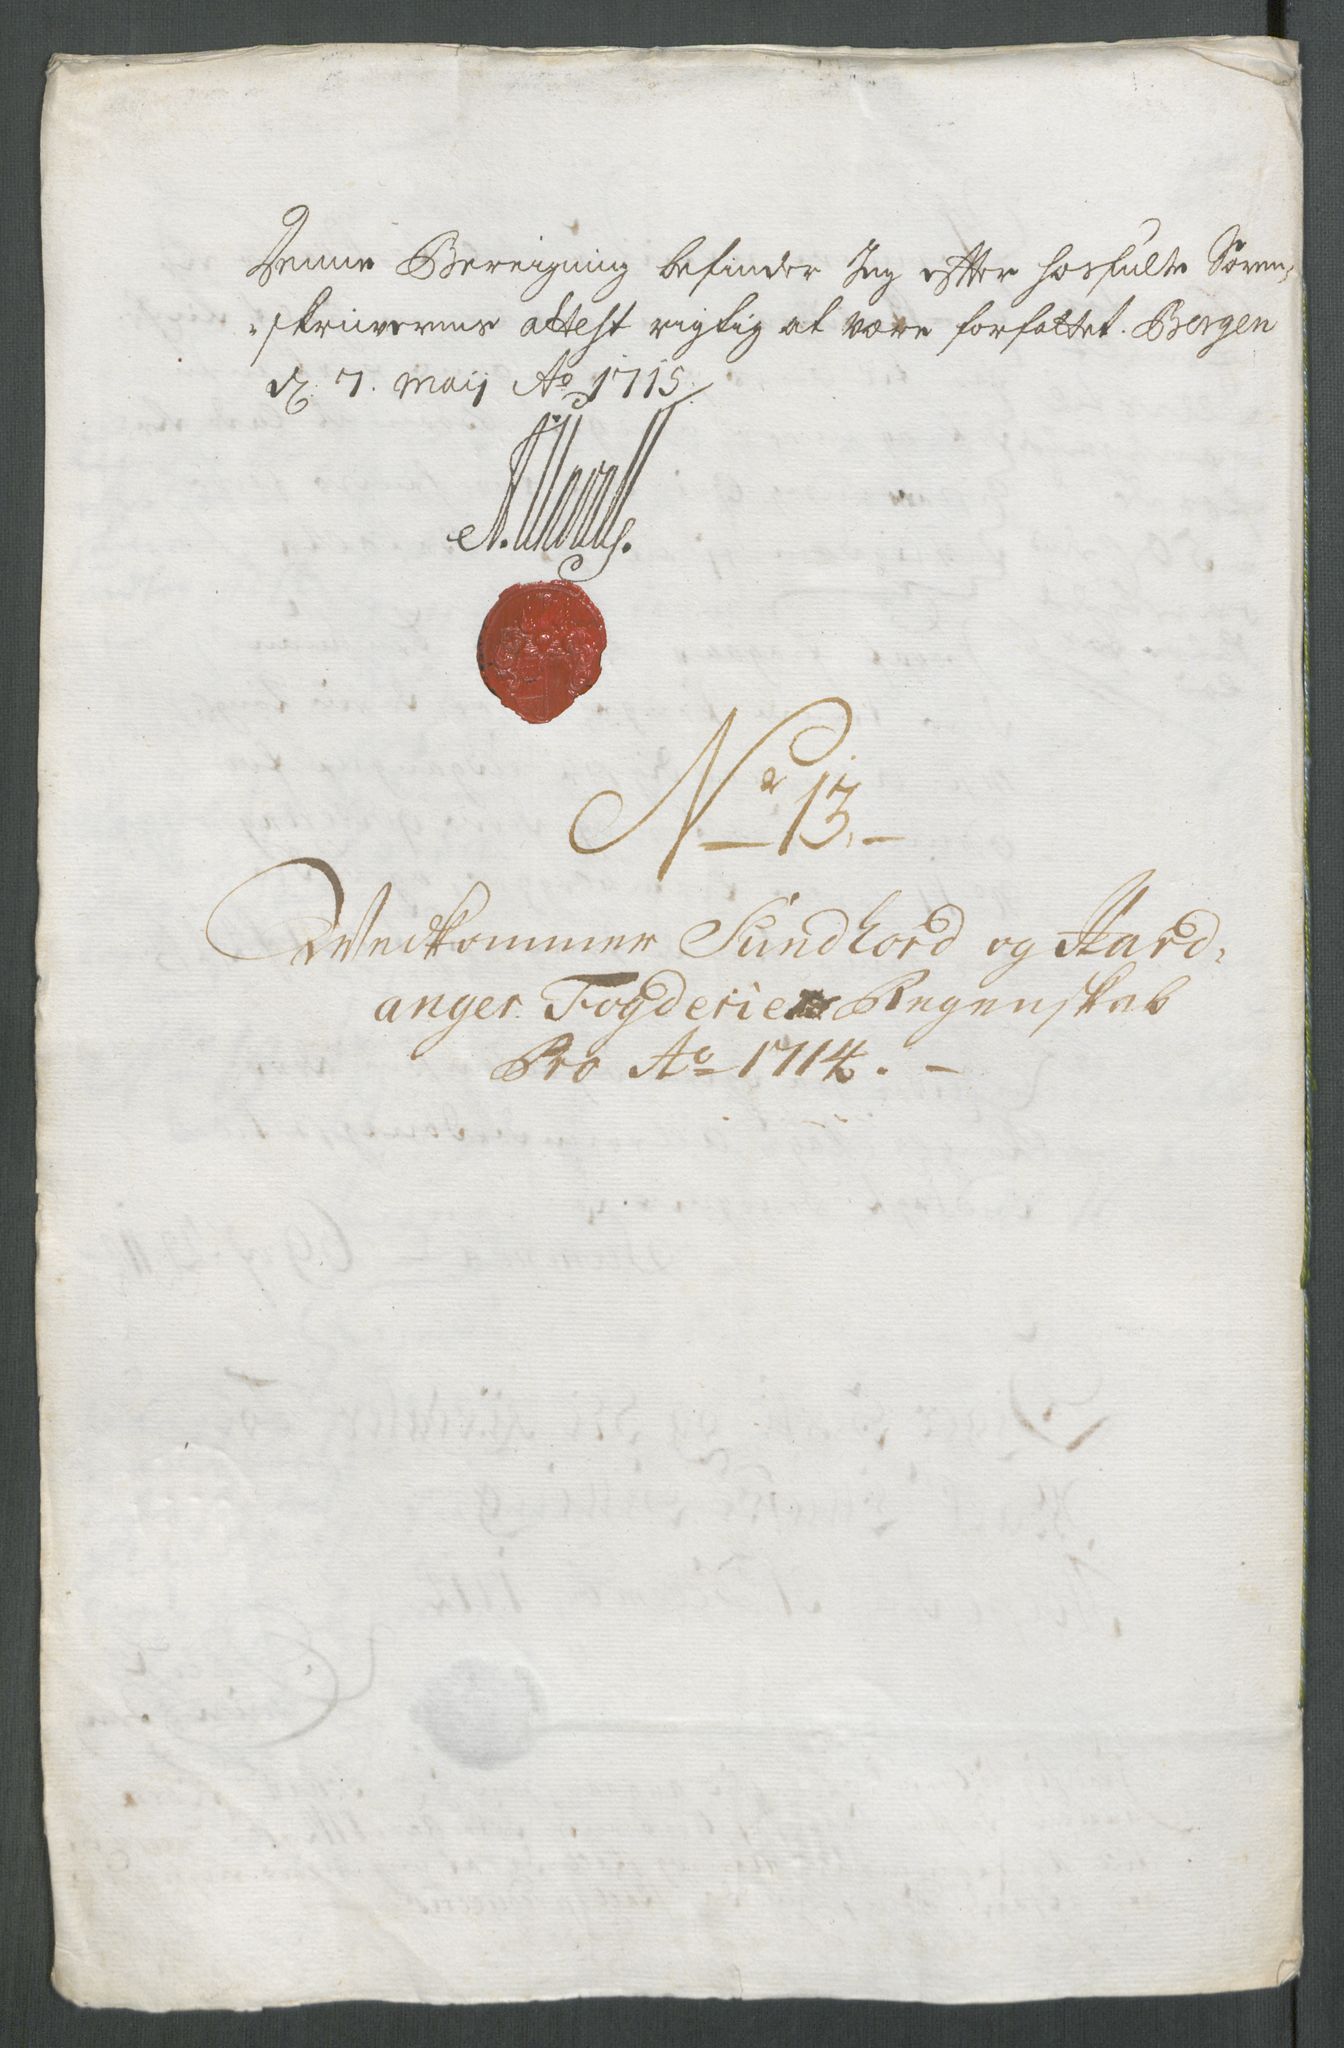 Denne Bereigning befinder Jeg effter hosfulte Søren,,
,,skrifverens attest rigtig at være forfattet. Bergen
d. 7. Maij Ao 1715.
No 13.
Vedkommer Sundhord og Hard,,
anger Fogderie Regenskab
Pro Ao 1714.